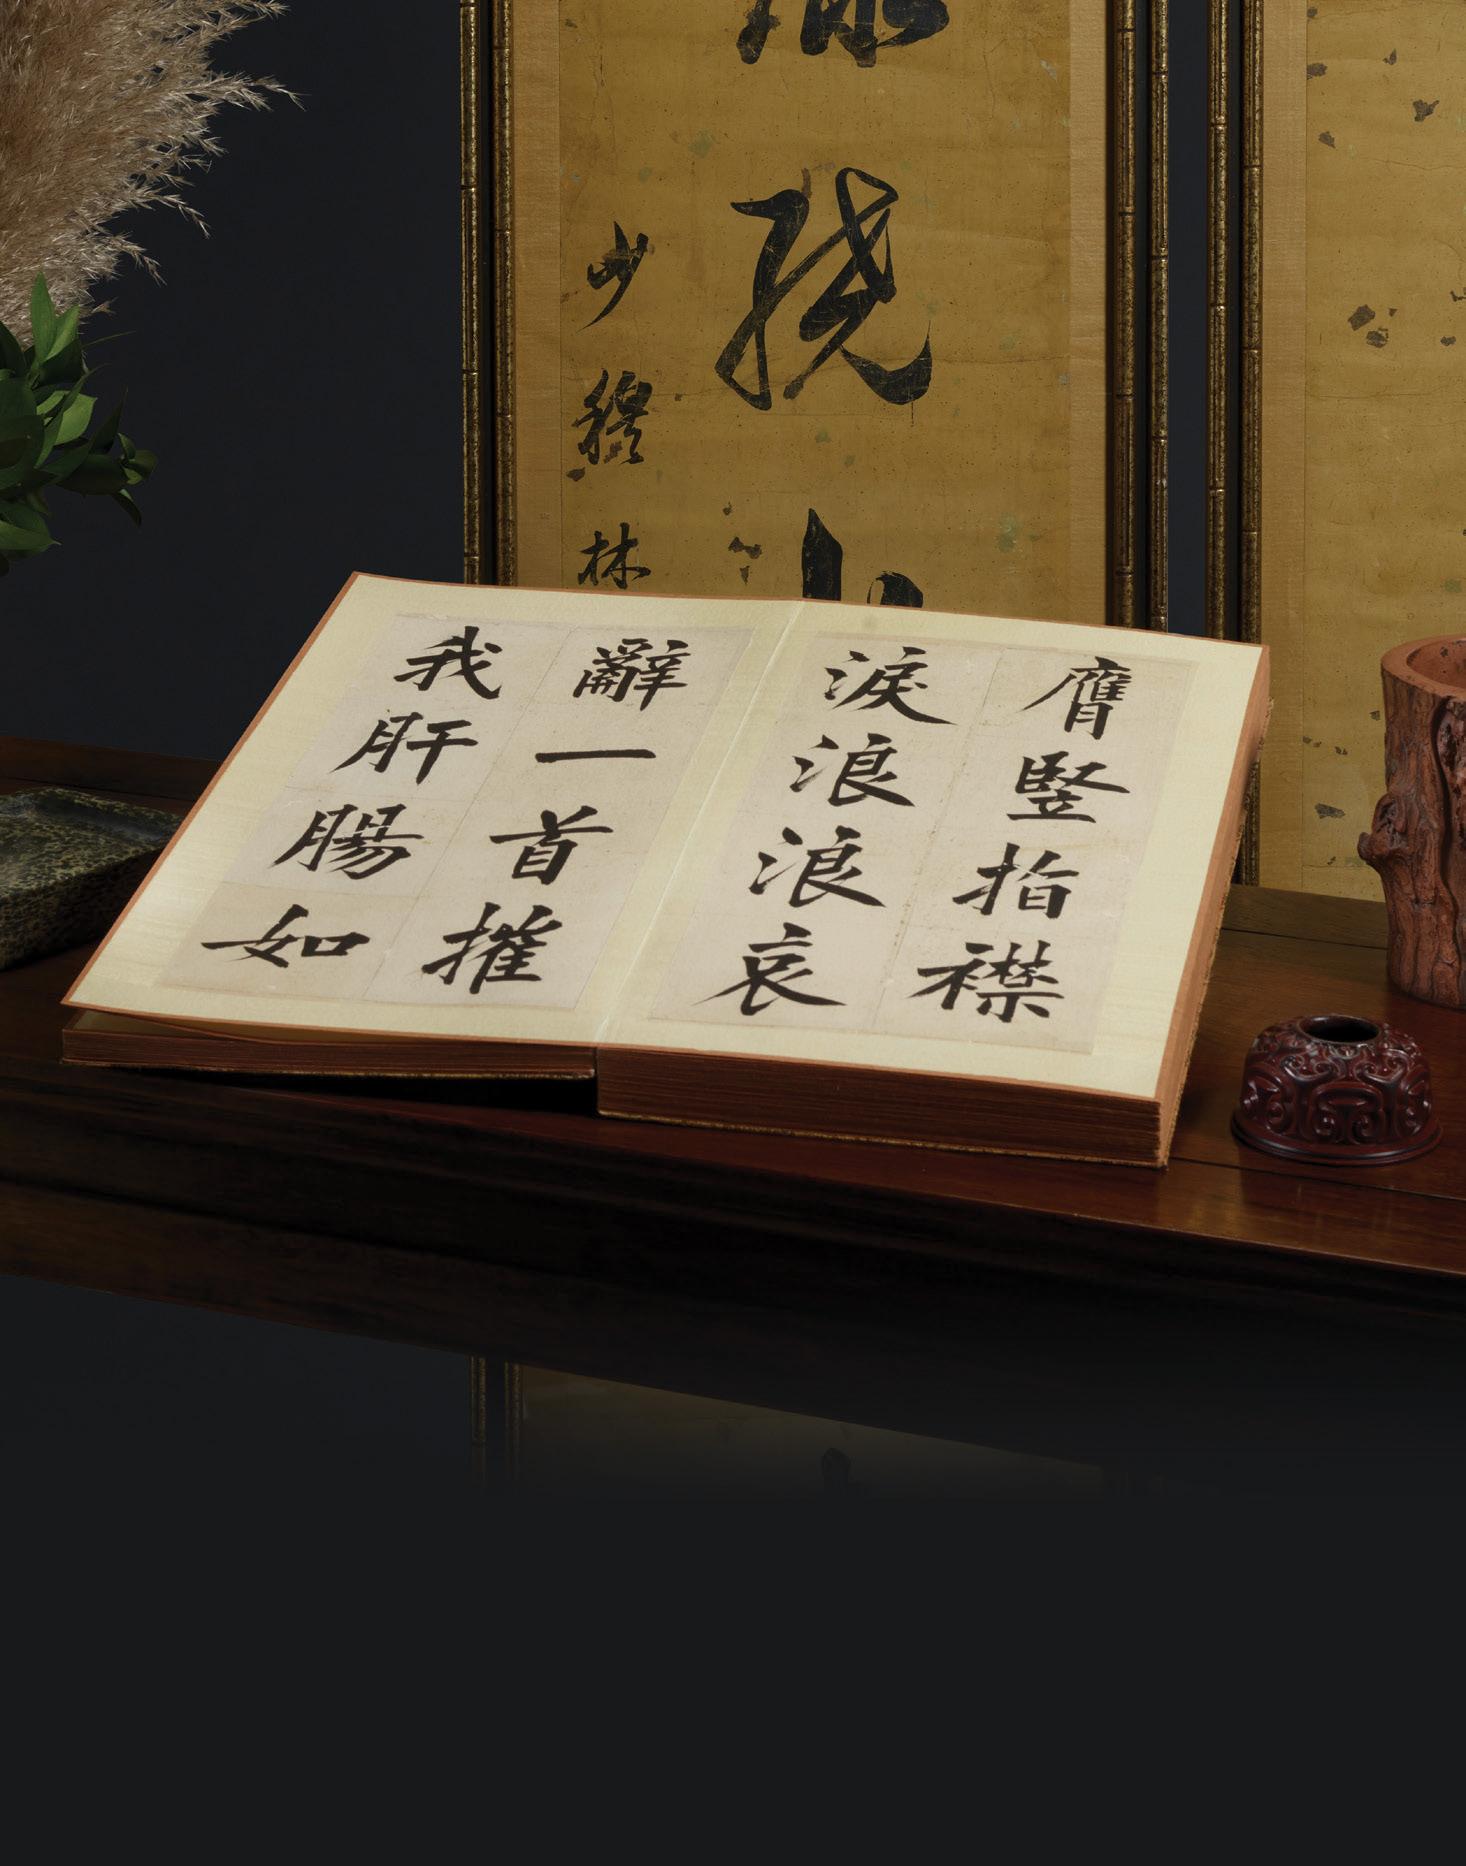 繞
少穆林
膺竪指襟
淚浪浪哀
辭一首摧
我肝腸如